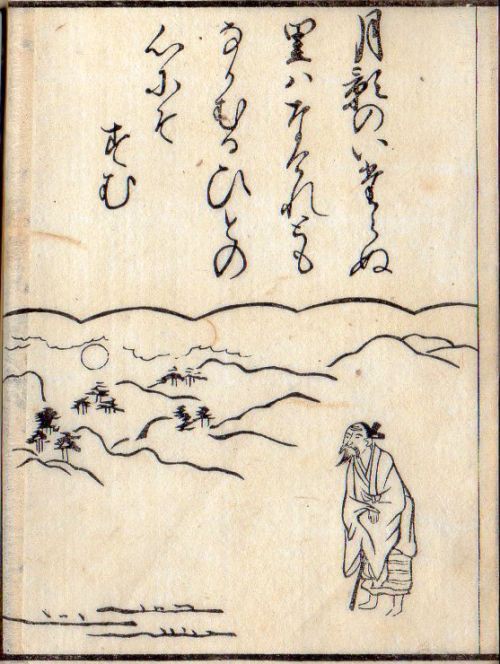 月影のいたらぬ
里ハなけれとも
なかむるひとの
心にそ
すむ